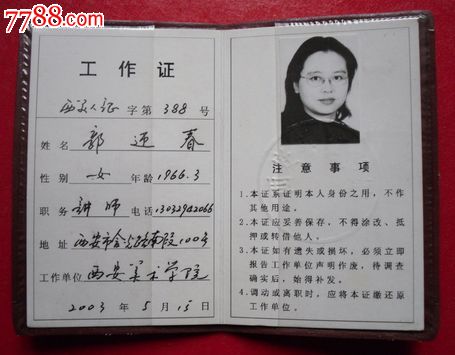 7788.com
工作证
西美人证 字第 388 号
姓名 郭迎春
性别 女 年龄 1966.3
职务 讲师 电话 13032942066
地址 西安市含光路南段100号
工作单位 西安美术学院
2003年5月15日
注意事项
1.本证系证明本人身份之用，不作
其他用途。
2.本证应妥善保存，不得涂改、抵
押或转借他人。
3.本证如有遗失或损坏，必须立即
报告工作单位声明作废，待调查
确实后，始得补发。
4.调动或离职时，应将本证缴还原
工作单位。